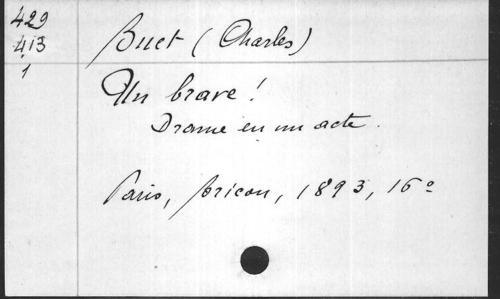 429
413
1
Buet (Charles)
Un brave !
Drame en un acte.
Paris, Bricon, 1893, 16°